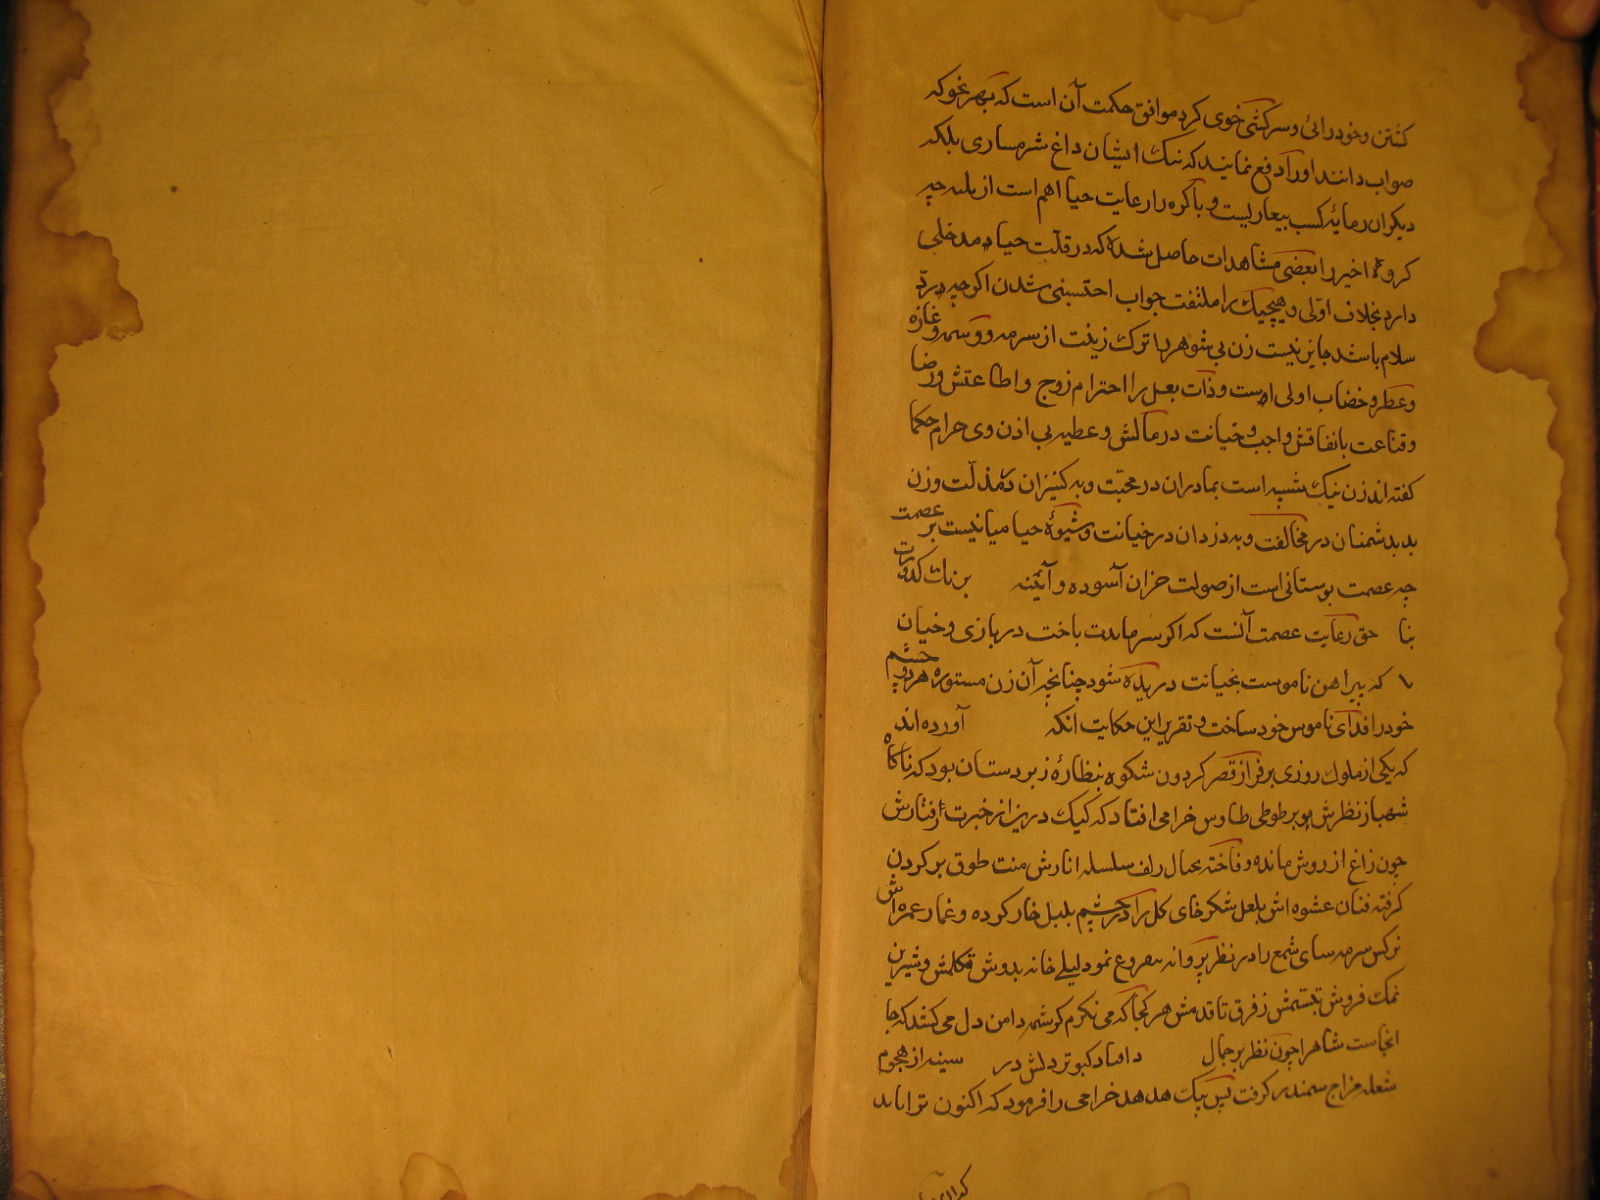 کشتن و خودرائی و سرکشی خوی کرد موافق حکمت آن است که بهر نحو که
صواب دانند او را دفع نمایند که ننک ایشان داغ شرمساری بلکه
دیکران را مایهٔ کسب بیعاریست و باکره را رعایت حیا اهم است از چه
کروه اخیر را بعضی مشاهدات حاصل شده که در قلّت حیا مدخلی
دارد بخلاف اوّلی و هیچیک را ملتفت جواب اجنبی شدن اکرچه ردّ
سلام باشد جایز نیست زن بی شوهر را ترک زینت از سرمه و وسمه و غازه
و عطر و خضاب اولی است و ذات بعل را احترام زوج و اطاعتش و رضا
و قناعت بانفاقش واجب و خیانت در مالش و عطیه بی اذن وی حرام حکما
کفته اند زن نیک شبیه است بمادران در محبّت و به کنیزان در مذلّت و زن
بد بدشمنان در مخالفت و به دزدان در خیانت و شیوهٔ حیا میانیست بر عصمت
چه عصمت بوستانی است از صولت خزان آسوده و آئینه کدورت
حق رعایت عصمت آنست که اکر سر باخت در بازی و
که پیراهن ناموست بخیانت دریده شود چنانچه آن زن مستوره هر دو چشم
خود را فدای ناموس خود ساخت و تقریر این حکایت آنکه آورده اند
که یکی از ملوک روزی بر فراز قصر کردون شکوه بنظارهٔ زبردستان بود که ناکاه
شهباز نظرش بر طوطی طاوس خرامی افتاد که کبک دری از رفتارش
چون زاغ از روش مانده و فاخته بخیال زلف سلسله منت طوق بر کردن
کرفته فتان عشوه اش بلعل شکرخای کل را در چشم بلبل خار کرده و غمزه اش
نرکس سرمه سای شمع را در نظر پروانه نمود لیلی خانه بدوش و شیرین
نمک فروش تبسّمش ز فرق تا قدمش هر کجا که می نکرم کرشمه دامن دل می کشد که جا
اینجاست شاه را چون نظر بر جمال افتاد کبوتر دلش در سینه از هجوم
شعله مزاج سمندر کرفت پس پیک هدهد خرامی را فرمود که اکنون ترا باید